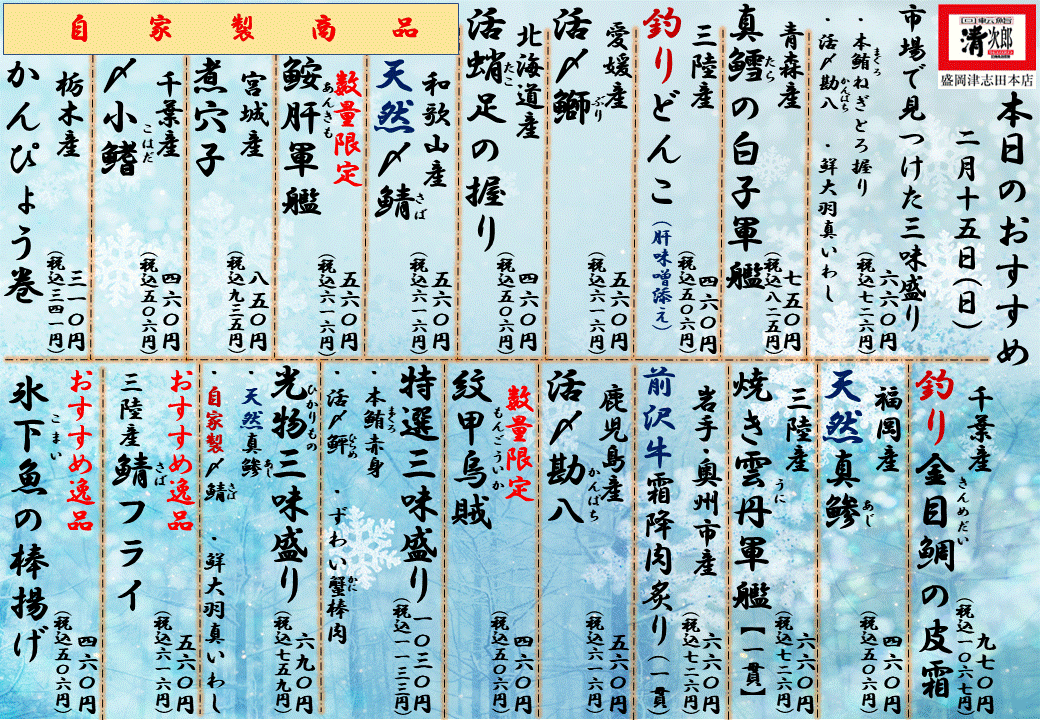 回転鮨
清次郎
盛岡津志田本店
本日のおすすめ
二月十五日(日)
市場で見つけた三味盛り
・本鮪ねぎとろ握り
まぐろ
・活〆勘八 ・鮮大羽真いわし
かんぱち
六六〇円
(税込七二六円)
青森産
真鱈の白子軍艦
たら
七五〇円
(税込八二五円)
三陸産
釣りどんこ(肝味噌添え)
四六〇円
(税込五〇六円)
愛媛産
活〆鰤
ぶり
五六〇円
(税込六一六円)
北海道産
活蛸足の握り
たこ
四六〇円
(税込五〇六円)
自家製商品
和歌山産
天然〆鯖
さば
五六〇円
(税込六一六円)
数量限定
鮟肝軍艦
あんきも
五六〇円
(税込六一六円)
宮城産
煮穴子
八五〇円
(税込九三五円)
千葉産
〆小鰭
こはだ
四六〇円
(税込五〇六円)
栃木産
かんぴょう巻
三一〇円
(税込三四一円)
千葉産
釣り金目鯛の皮霜
きんめだい
九七〇円
(税込一〇六七円)
福岡産
天然真鯵
あじ
四六〇円
(税込五〇六円)
三陸産
焼き雲丹軍艦【一貫】
うに
六六〇円
(税込七二六円)
岩手・奥州市産
前沢牛霜降肉炙り(一貫)
六六〇円
(税込七二六円)
鹿児島産
活〆勘八
かんぱち
五六〇円
(税込六一六円)
数量限定
紋甲烏賊
もんごういか
四六〇円
(税込五〇六円)
特選三味盛り
・本鮪赤身 ・ずわい蟹棒肉
まぐろ
かに
・活〆鮃
ひらめ
一〇三〇円
(税込一一三三円)
光物三味盛り
ひかりもの
・天然真鯵
あじ
・自家製〆鯖 ・鮮大羽真いわし
さば
六九〇円
(税込七五九円)
おすすめ逸品
三陸産鯖フライ
さば
五六〇円
(税込六一六円)
おすすめ逸品
氷下魚の棒揚げ
こまい
四六〇円
(税込五〇六円)